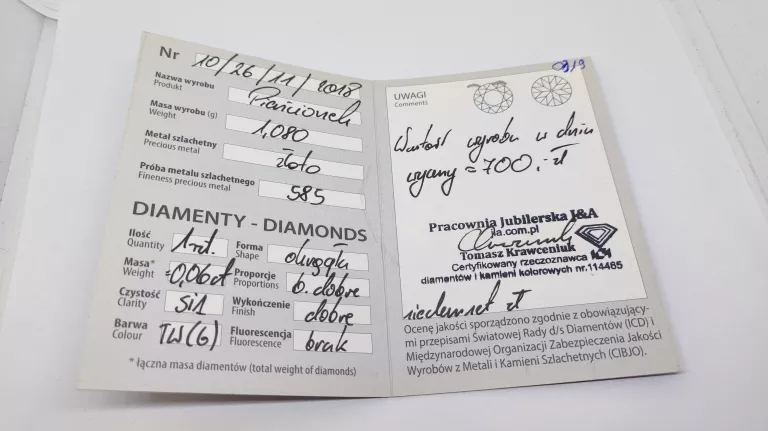 Nr 10/26/11/2018
Nazwa wyrobu Pierścionek
Produkt
Masa wyrobu (g) 1,080
Weight
Metal szlachetny złoto
Precious metal
Próba metalu szlachetnego 585
Fineness precious metal
DIAMENTY - DIAMONDS
Ilość 1szt. Forma okrągła
Quantity Shape
Masa* ≈0,06ct Proporcje b. dobre
Weight Proportions
Czystość Si1 Wykończenie dobre
Clarity Finish
Barwa TW(G) Fluorescencja brak
Colour Fluorescence
* łączna masa diamentów (total weight of diamonds)
UWAGI
Comments
Wartość wyrobu w dniu
wyceny = 700,- zł
Pracownia Jubilerska J&A
jla.com.pl
Tomasz Krawceniuk
Certyfikowany rzeczoznawca
diamentów i kamieni kolorowych nr.114465
siedemset zł
Ocenę jakości sporządzono zgodnie z obowiązujący-
mi przepisami Światowej Rady d/s Diamentów (ICD) i
Międzynarodowej Organizacji Zabezpieczenia Jakości
Wyrobów z Metali i Kamieni Szlachetnych (CIBJO).